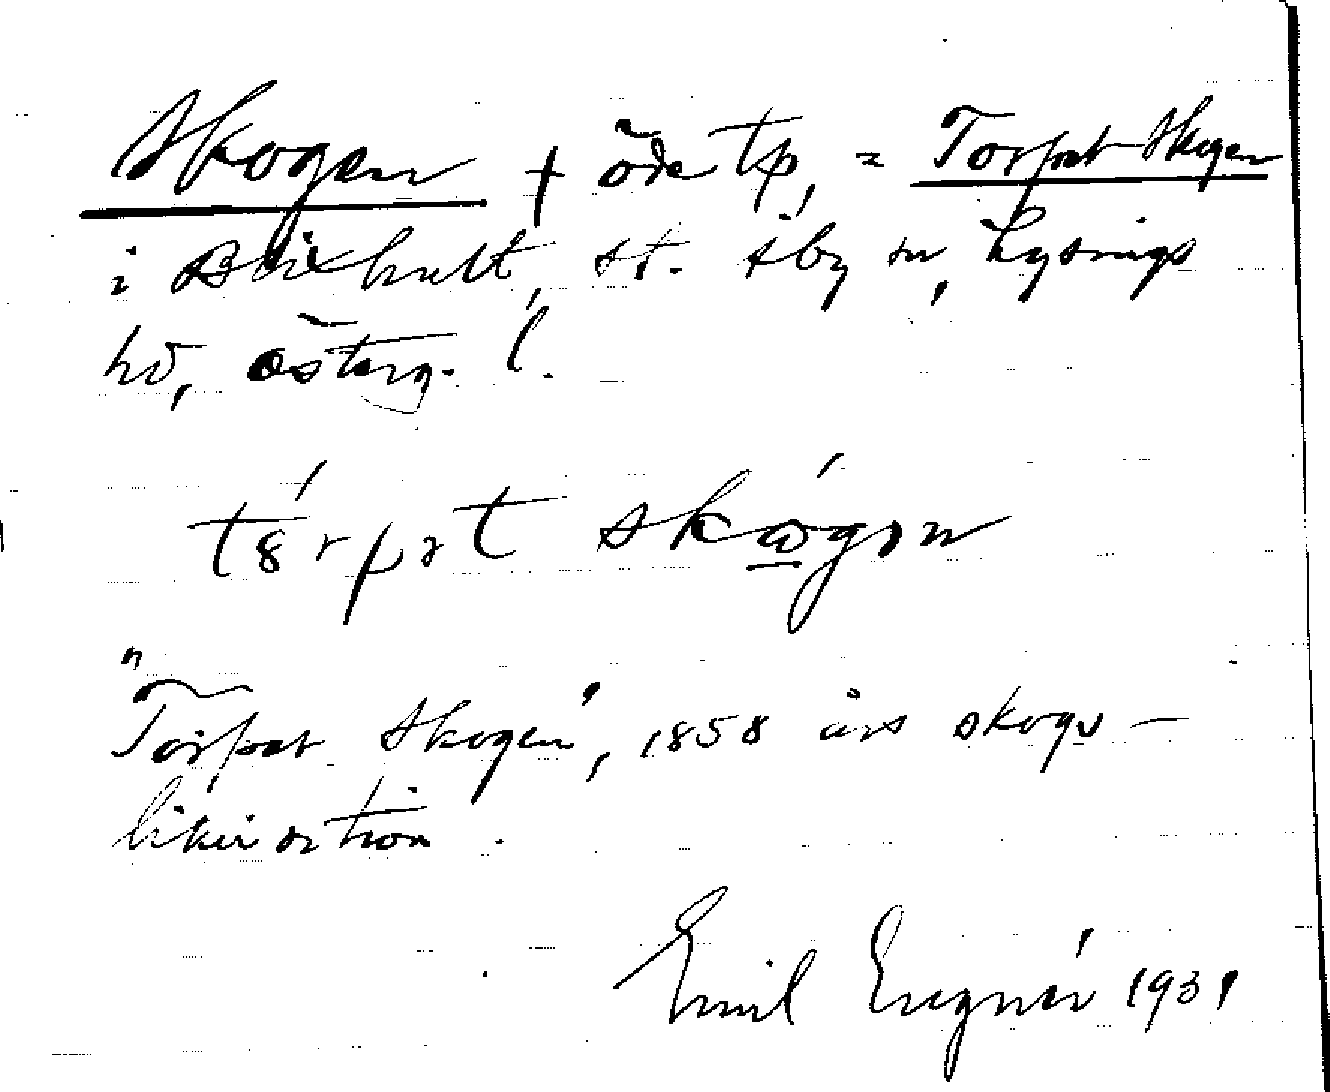 Skogen † öde tp, = Torpet Skogen
i hult, st. Åby sn, Lysings
hd, Österg. l.
tȣrpət skωgən
"Torpet Skogen", 1858 års skogs-
likvidation.
Emil 1931